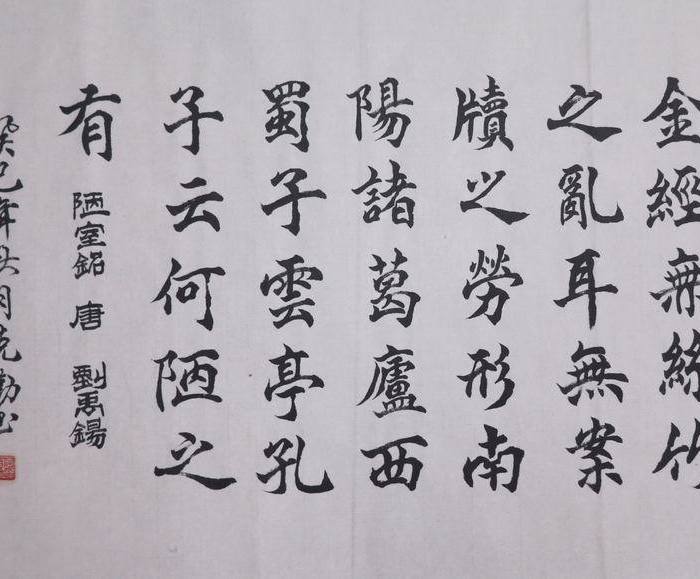 金經無絲竹
之亂耳無案
牘之勞形南
陽諸葛廬西
蜀子雲亭孔
子云何陋之
有
陋室銘 唐 劉禹錫
癸巳年 月克勤书